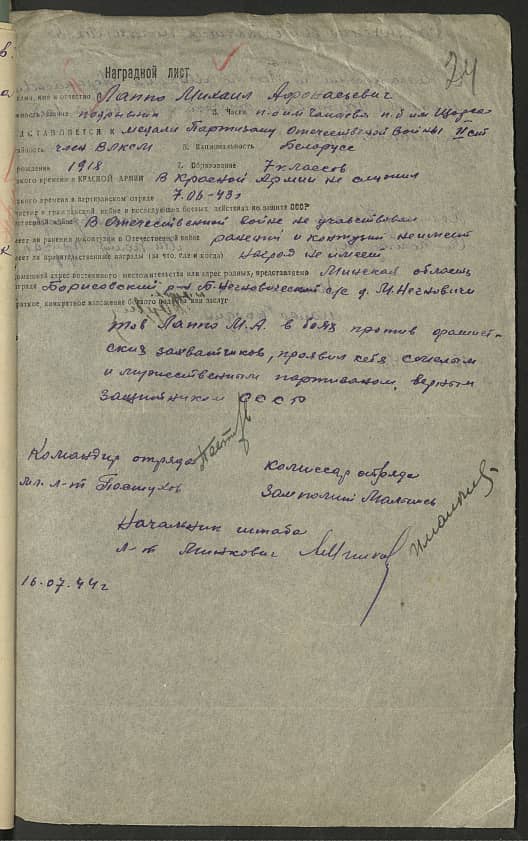 24
Наградной лист
имя и отчество Лаппо Михаил Афонасьевич
подрывник 3. Часть п-о им Чапаева п.б им Щорса
ДСТАВЛЯЕТСЯ к медали Партизану Отечественной Войны II ст
член ВЛКСМ 6. Национальность Белорусс
рождения 1918 7. Образование 7 классов
какого времени в КРАСНОЙ АРМИИ В Красной Армии не служил
какого времени в партизанском отряде 7.06-43г
участие в гражданской войне и последующих боевых действиях по защите СССР
В Отечественной войне не участвовал
меет ли ранения и контузии в Отечественной войне ранений и контузий не имеет
меет ли правительственные награды (за что, где и когда) наград не имеет
домашний адрес постоянного местожительства или адрес родных, представляемого Минская область
Борисовский р-н с/с д. М. Негновичи
раткое, конкретное изложение боевого подвига или заслуг
тов Лаппо М.А. в боях против фашист-
ских захватчиков, проявил себя смелым
и мужественным партизаном, верным
защитником СССР
Командир отряда
мл. л-т Пастухов
Комиссар отряда
Замполит
Начальник штаба
л-т Минкович
16.07.44г